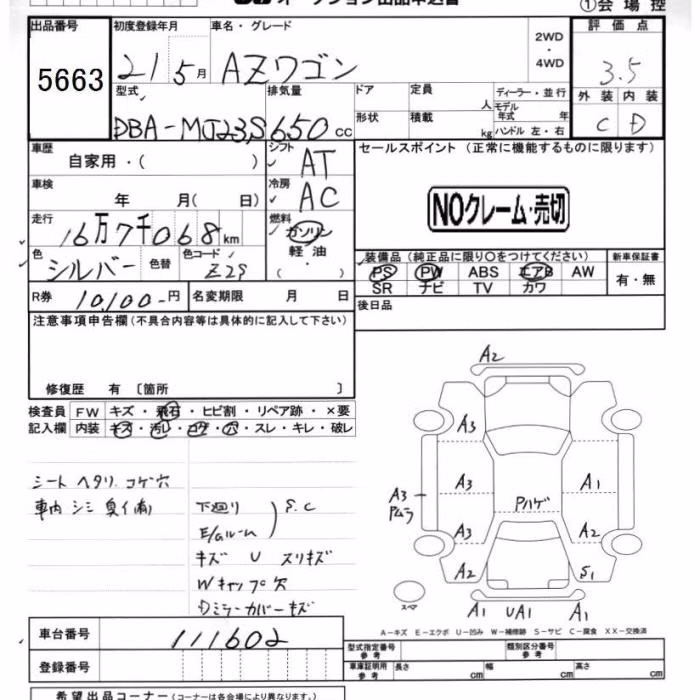 オークション出品申込書
①会場控
出品番号 初度登録年月 車名・グレード 2WD・4WD 評価点
5663 21 5月 AZワゴン 3.5
型式 排気量 ドア 定員 人 ディーラー・並行 外装 内装
DBA-MJ23S 650cc 形状 積載 kg モデル年式 年 ハンドル 左・右 C D
車歴 自家用・( ) シフト AT セールスポイント(正常に機能するものに限ります)
車検 年 月( 日) 冷房 AC
NOクレーム・売切
走行 16万7千068km 燃料 ガソリン 軽油・( )
色 シルバー 色替 色コード Z2S
装備品(純正品に限り○をつけてください) 新車保証書
PS PW ABS エアB AW 有・無
SR ナビ TV カワ
R券 10,100-円 名変期限 月 日 後日品
注意事項申告欄(不具合内容等は具体的に記入して下さい)
修復歴 有〔箇所 〕
検査員 FW キズ・飛石・ヒビ割・リペア跡・×要
記入欄 内装 キズ・汚レ・コゲ・穴・スレ・キレ・破レ
シートヘタリ コゲ穴
車内 シミ 臭イ(有)
下廻り S.C
E/gルーム
キズ U スリキズ
Wキャップ穴
Dミラーカバーキズ
A2
A3
A3 A1
A3 Pムラ Pハゲ
A3 A2
A2 S1
スペア
A1 UA1 A1
A-キズ E-エクボ U-凹み W-補修跡 S-サビ C-腐食 XX-交換済
車台番号 111602
型式指定番号 参考 類別区分番号 参考
登録番号
車庫証明用 参考 長さ cm 幅 cm 高さ cm
希望出品コーナー(コーナーは各会場により異なります。)